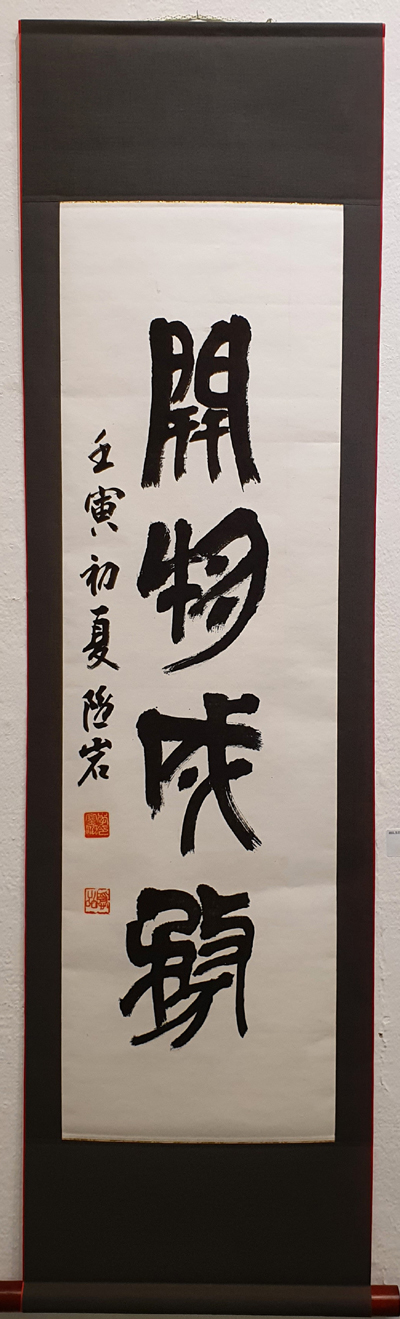 開物成務
壬寅初夏岩